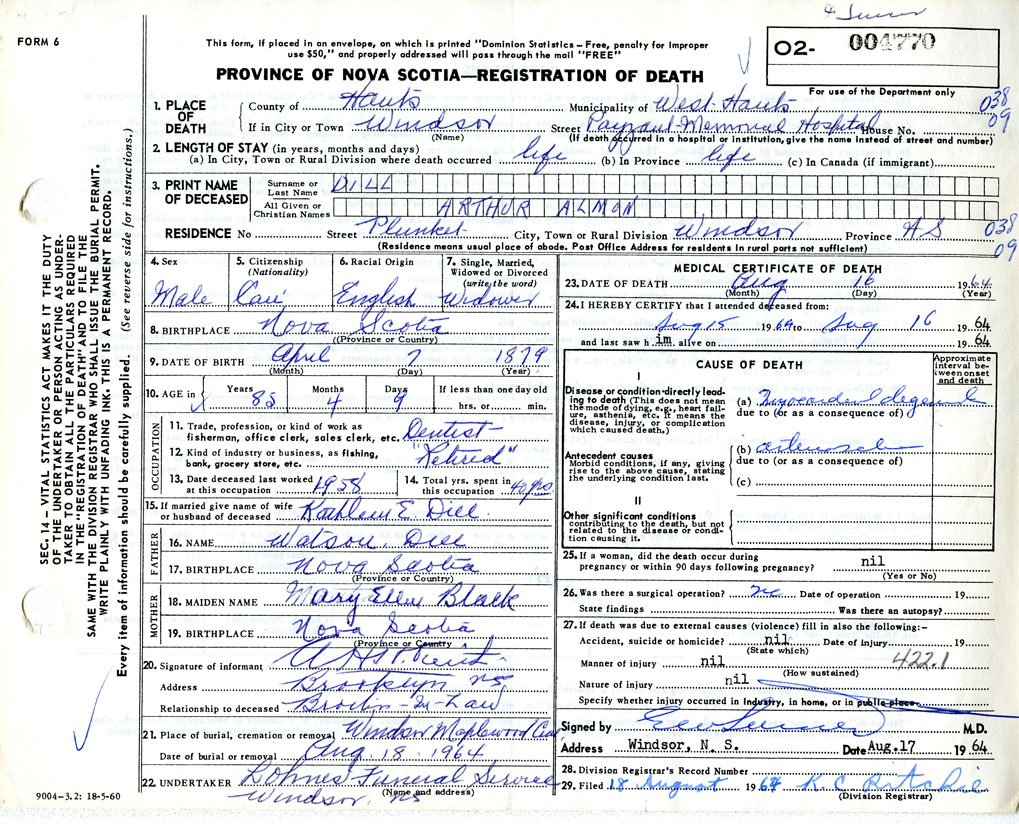 FORM 6
This form, if placed in an envelope, on which is printed "Dominion Statistics – Free, penalty for improper
use $50," and properly addressed will pass through the mail "FREE"
PROVINCE OF NOVA SCOTIA—REGISTRATION OF DEATH
02- 004770
For use of the Department only
038
09
1. PLACE OF DEATH
County of Hants Municipality of West Hants
If in City or Town Windsor Street Payzant Memorial Hospital House No.
(Name) (If death occurred in a hospital or institution, give the name instead of street and number)
2. LENGTH OF STAY (in years, months and days)
(a) In City, Town or Rural Division where death occurred life (b) In Province life (c) In Canada (if immigrant)
3. PRINT NAME OF DECEASED
Surname or Last Name DILL
All Given or Christian Names ARTHUR ALMON
RESIDENCE No Street Plunket City, Town or Rural Division Windsor Province NS
038
09
(Residence means usual place of abode. Post Office Address for residents in rural parts not sufficient)
4. Sex Male
5. Citizenship (Nationality) Can
6. Racial Origin English
7. Single, Married, Widowed or Divorced (write the word) Widower
8. BIRTHPLACE Nova Scotia
(Province or Country)
9. DATE OF BIRTH April 7 1879
(Month) (Day) (Year)
10. AGE in Years 85 Months 4 Days 9 If less than one day old hrs. or min.
OCCUPATION
11. Trade, profession, or kind of work as fisherman, office clerk, sales clerk, etc. Dentist
12. Kind of industry or business, as fishing, bank, grocery store, etc. "Retired"
13. Date deceased last worked at this occupation 1958
14. Total yrs. spent in this occupation
15. If married give name of wife or husband of deceased Kathleen E. Dill
FATHER
16. NAME Watson Dill
17. BIRTHPLACE Nova Scotia
(Province or Country)
MOTHER
18. MAIDEN NAME Mary Ellen Black
19. BIRTHPLACE Nova Scotia
(Province or Country)
20. Signature of informant
Address Brooklyn NS
Relationship to deceased Brother-In-Law
21. Place of burial, cremation or removal Windsor Maplewood Cem
Date of burial or removal Aug. 18. 1964
22. UNDERTAKER Lohnes Funeral Service
Windsor. NS (Name and address)
9004-3.2: 18-5-60
MEDICAL CERTIFICATE OF DEATH
23. DATE OF DEATH Aug 16 1964
(Month) (Day) (Year)
24. I HEREBY CERTIFY that I attended deceased from:
Aug 15 1964 to Aug 16 1964
and last saw h im. alive on 1964
CAUSE OF DEATH
Approximate interval between onset and death
I
Disease or condition directly leading to death (This does not mean the mode of dying, e.g., heart failure, asthenia, etc. It means the disease, injury, or complication which caused death.)
(a) Myocardial
due to (or as a consequence of)
Antecedent causes
Morbid conditions, if any, giving rise to the above cause, stating the underlying condition last.
(b)
due to (or as a consequence of)
(c)
II
Other significant conditions
contributing to the death, but not related to the disease or condition causing it.
25. If a woman, did the death occur during pregnancy or within 90 days following pregnancy? nil
(Yes or No)
26. Was there a surgical operation? no Date of operation 19
State findings Was there an autopsy?
27. If death was due to external causes (violence) fill in also the following:–
Accident, suicide or homicide? nil Date of injury 19
(State which)
Manner of injury nil 422.1
(How sustained)
Nature of injury nil
Specify whether injury occurred in Industry, in home, or in public place
Signed by M.D.
Address Windsor, N. S. Date Aug.17 1964
28. Division Registrar's Record Number
29. Filed 18 August 1964 K C Ritchie
(Division Registrar)
SEC. 14 – VITAL STATISTICS ACT MAKES IT THE DUTY
OF THE UNDERTAKER OR PERSON ACTING AS UNDER-
TAKER TO OBTAIN ALL THE PARTICULARS REQUIRED
IN THE "REGISTRATION OF DEATH" AND TO FILE THE
SAME WITH THE DIVISION REGISTRAR WHO SHALL ISSUE THE BURIAL PERMIT.
WRITE PLAINLY WITH UNFADING INK. THIS IS A PERMANENT RECORD.
Every item of information should be carefully supplied. (See reverse side for instructions.)